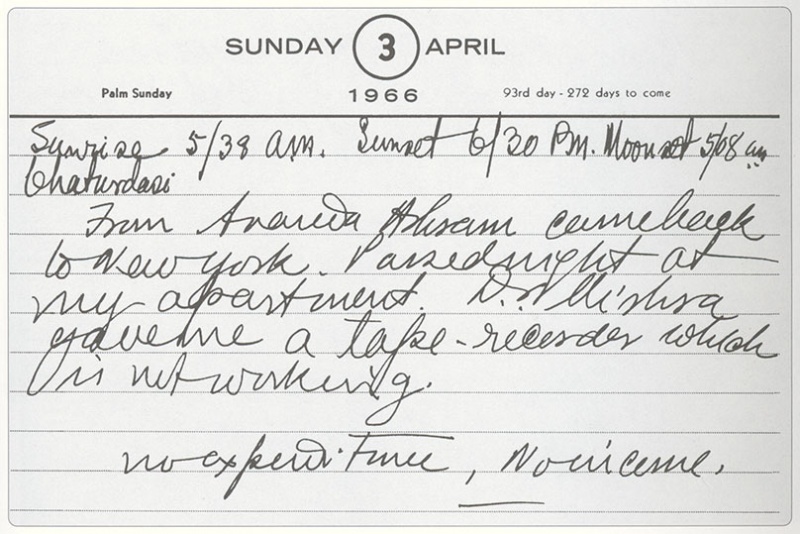 SUNDAY 3 APRIL
Palm Sunday 1966 93rd day - 272 days to come
Sunrise 5/38 am. Sunset 6/30 Pm. Moonset 5/08 am
Chaturdasi
From Ananda Ashram came back
to New York. Passed night at
my apartment. Dr. Mishra
gave me a tape-recorder which
is not working.
no expenditure, No income.